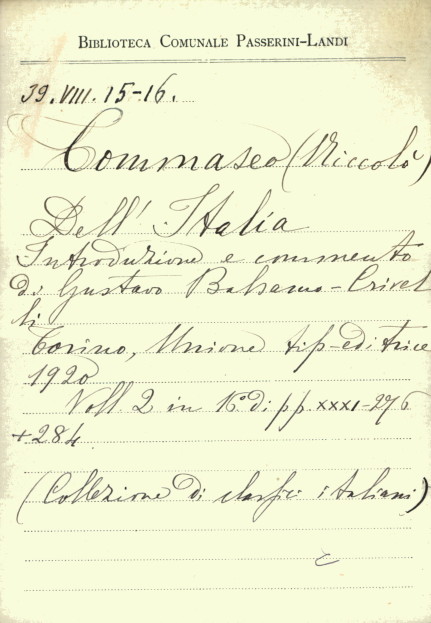 BIBLIOTECA COMUNALE PASSERINI-LANDI
39.VIII.15-16.
Tommaseo (Niccolò)
Dell' Italia
Introduzione e commento
di Gustavo Balsamo-Crivel
li
Torino, Unione tip-editrice
1920
Voll. 2 in 16° di pp XXXI-276
+284
(Collezione di classici italiani)